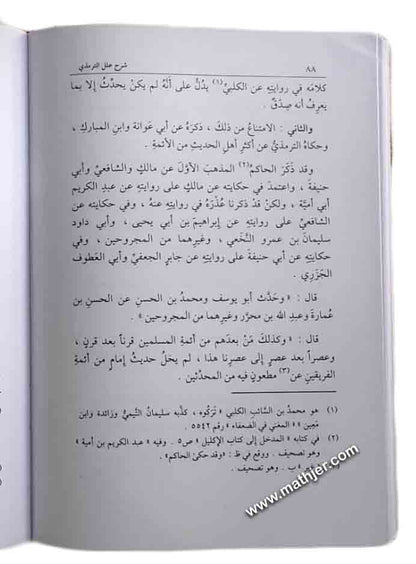 ٨٨
شرح علل الترمذي
كلامَه في روايتِهِ عن الكلبيِّ(١) يدُلُّ على أنَّه لم يكنْ يحدِّثُ إلا بما
يعرِفُ أنه صِدْقٌ .
والثاني : الامتناعُ من ذلك ، ذكرَهُ عن أبي عَوانة وابنِ المباركِ ،
وحكاهُ الترمذيُّ عن أكثرِ أهلِ الحديثِ من الأئمةِ .
وقد ذَكَرَ الحاكمُ(٢) المذهبَ الأوَّلَ عن مالكٍ والشافعيِّ وأبي
حنيفةَ ، واعتمدَ في حكايتِهِ عن مالكٍ على روايتِهِ عن عبدِ الكريمِ
أبي أميَّةَ ، ولكنْ قدْ ذكرنا عُذْرَهُ في روايتِهِ عنهُ ، وفي حكايتِهِ عن
الشافعيِّ على روايتِهِ عن إبراهيمَ بنِ أبي يحيى ، وأبي داود
سليمانَ بنِ عمرو النَّخعي ، وغيرِهما من المجروحين ، وفي
حكايتِهِ عن أبي حنيفةَ على روايتِهِ عن جابرٍ الجعفيِّ وأبي العَطوفِ
الجَزَري .
قال : « وحَدَّث أبو يوسف ومحمدُ بنُ الحسنِ عن الحسنِ بنِ
عُمارةَ وعبدِ اللهِ بن محرَّر وغيرِهما من المجروحين » .
قال : « وكذلكَ مَنْ بعدَهم من أئمةِ المسلمين قرناً بعد قرنٍ ،
وعصراً بعد عصرٍ إلى عصرِنا هذا ، لم يخلُ حديثُ إمامٍ من أئمةِ
الفريقين عن(٣) مطعونٍ فيه من المحدِّثين .
(١) هو محمدُ بن السائبِ الكلبي « تَرَكُوه ، كذَّبه سليمانُ التيميُّ وزائدة وابن
معين » « المغني في الضعفاء » رقم ٥٥٤٢ .
(٢) في كتابه « المدخل إلى كتاب الإكليل » ص٥ . وفيه « عبد الكريم بن أمية »
وهو تصحيف . ووقع في ظ : « وقد حكىٰ الحاكم» .
» ب . وهو تصحيف .
www.mathjer.com